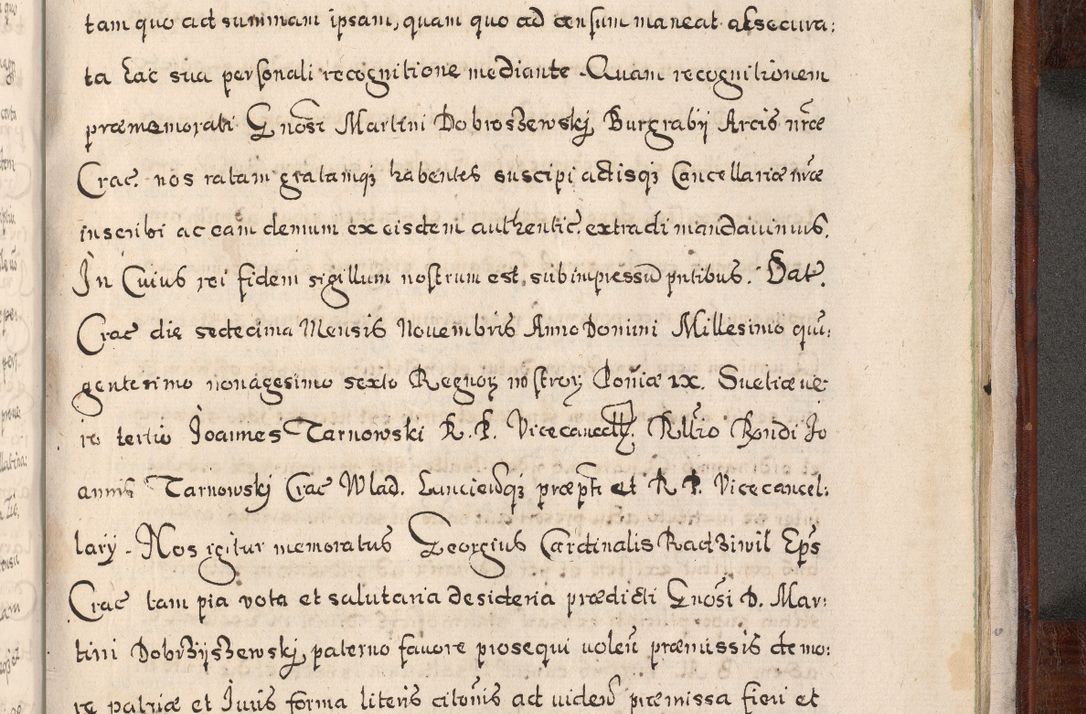 tam quo ad summam ipsam, quam quo ad censum maneat assecura:
ta hac sua personali recognitione mediante. Quam recognitionem
præmemorati Gnosi Martini Dobroszewskj Burgrabij Arcis nræ
Crac. nos ratam gratamq3 habentes suscipi actisq3 Cancellariæ nræ
inscribi ac eam demum ex eisdem authentic. extradi mandauimus.
In Cuius rei fidem sigillum nostrum est subimpressū pntibus. Dat.
Crac die sedecima Mensis Nouembris Anno Domini Millesimo quī:
gentesimo nonagesimo sexto Regnor nostror Poniæ IX. Sueliæ ue:
ro tertio Joannes Tarnowski R. P. Vicecancell. Rllio Rondi Jo
annis Tarnowskj Crac Wlad. Lunciensq3 præpti et R. P. Vicecancel:
larij. Nos igitur memoratus Georgius Cardinalis Radziwil Eps
Crac tam pia vota et salutaria desideria prædicti Gnosi D. Mar:
tini Dobrzyszewskj paterno fauore prosequi uolen præmissis de mo:
re patriæ et Juris forma literis citonis ad uidend præmissa fieri et